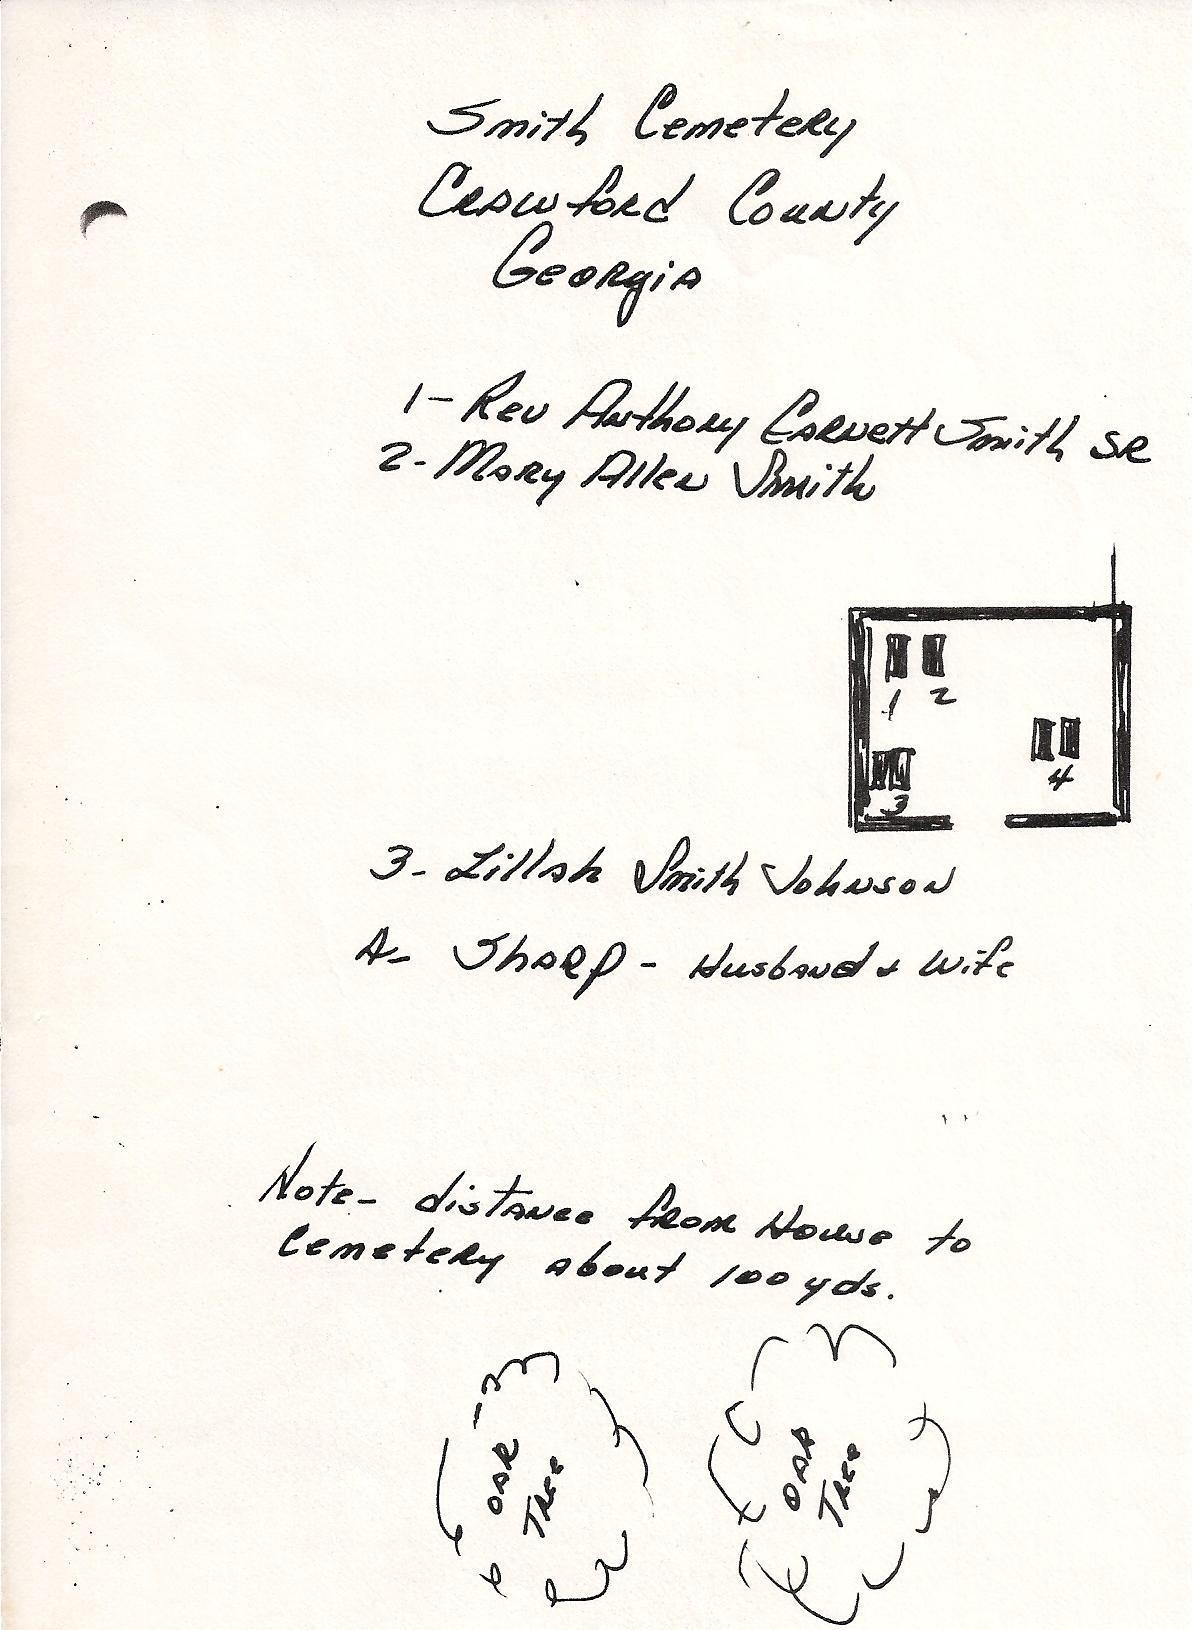 Smith Cemetery
Crawford County
Georgia
1- Rev Anthony Smith SR
2- Mary Allen Smith
1 2
4
3
3- Lillah Smith Johnson
4- Sharp - Husband + Wife
Note- distance from House to
Cemetery about 100 yds.
OAK
TREE
OAK
TREE